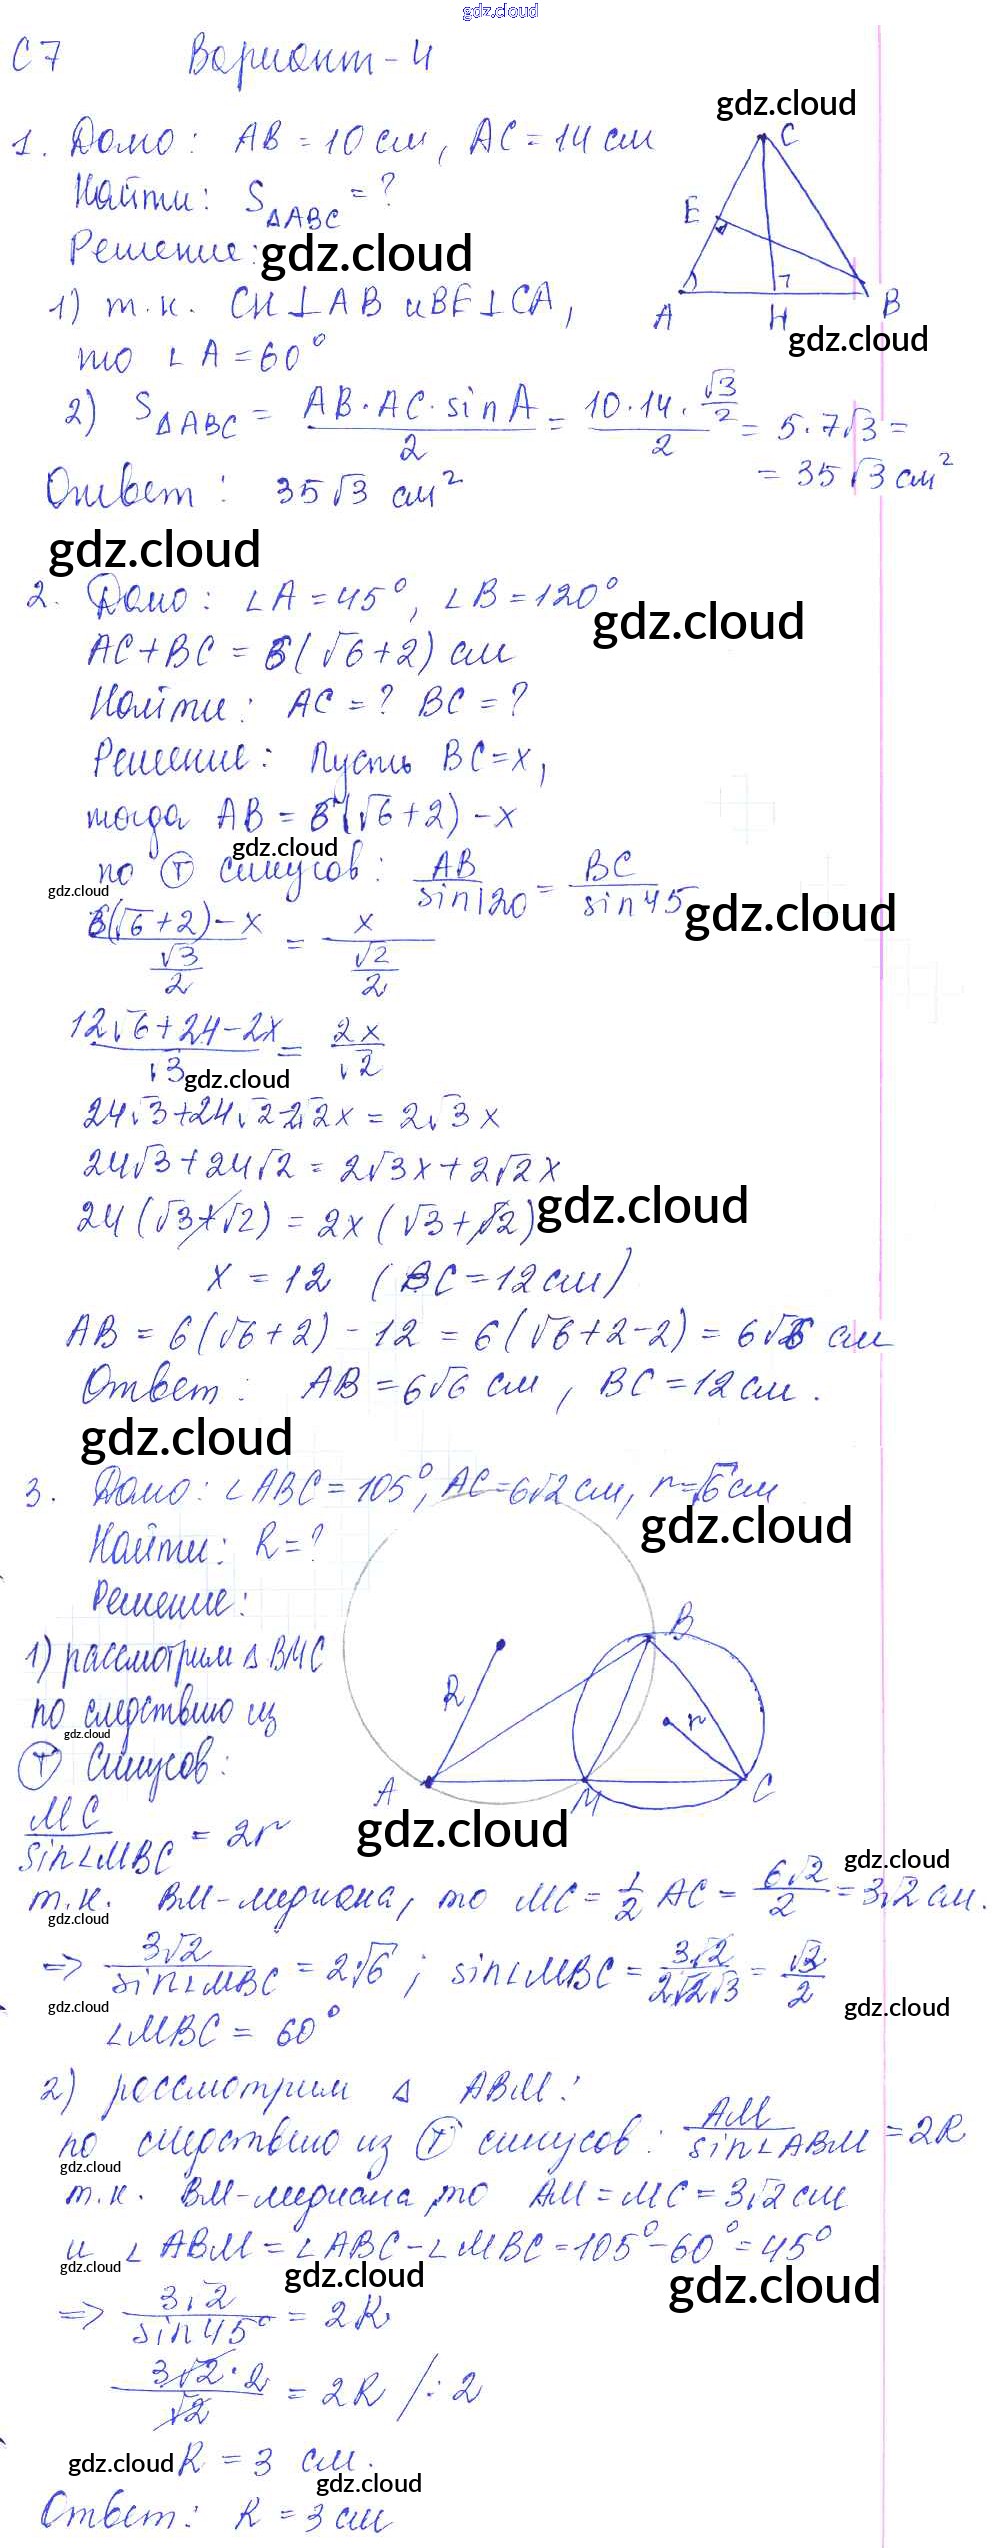 gdz.cloud
С7 Вариант-4
gdz.cloud
1. Дано: AB = 10 см, AC = 14 см
Найти: S△ABC = ?
Решение:
gdz.cloud
C
E
A H B
gdz.cloud
1) т.к. CH⊥AB и BE⊥CA,
то ∠A = 60°
2) S△ABC = AB·AC·sinA/2 = 10·14·√3/2/2 = 5·7√3 =
= 35√3 см²
Ответ: 35√3 см²
gdz.cloud
2. Дано: ∠A = 45°, ∠B = 120°
gdz.cloud
AC + BC = 6(√6+2) см
Найти: AC = ? BC = ?
Решение: Пусть BC = x,
тогда AB = 6(√6+2) - x
gdz.cloud
по Т синусов: AB/sin120 = BC/sin45
gdz.cloud
gdz.cloud
6(√6+2)-x/√3/2 = x/√2/2
12√6+24-2x/√3 = 2x/√2
gdz.cloud
24√3+24√2-2√2x = 2√3x
24√3+24√2 = 2√3x+2√2x
24(√3+√2) = 2x(√3+√2)
gdz.cloud
x = 12 (BC = 12 см)
AB = 6(√6+2) - 12 = 6(√6+2-2) = 6√6 см
Ответ: AB = 6√6 см, BC = 12 см.
gdz.cloud
3. Дано: ∠ABC = 105°, AC = 6√2 см, r = √6 см
gdz.cloud
Найти: R = ?
Решение:
1) рассмотрим △BMC
по следствию из
gdz.cloud
Т синусов:
B
R r
A M C
gdz.cloud
MC/sin∠MBC = 2r
gdz.cloud
т.к. BM-медиана, то MC = 1/2 AC = 6√2/2 = 3√2 см.
gdz.cloud
=> 3√2/sin∠MBC = 2√6; sin∠MBC = 3√2/2√2√3 = √3/2
gdz.cloud
gdz.cloud
∠MBC = 60°
2) рассмотрим △ABM:
по следствию из Т синусов: AM/sin∠ABM = 2R
gdz.cloud
т.к. BM-медиана, то AM = MC = 3√2 см
и ∠ABM = ∠ABC - ∠MBC = 105° - 60° = 45°
gdz.cloud
gdz.cloud
gdz.cloud
=> 3√2/sin45° = 2R
3√2·2/√2 = 2R /:2
gdz.cloud
R = 3 см.
gdz.cloud
Ответ: R = 3 см